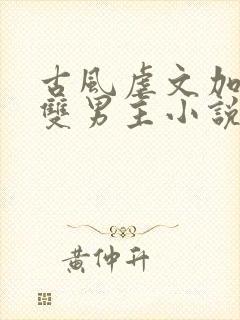 古風虐文加
雙男主小說
黃仲升